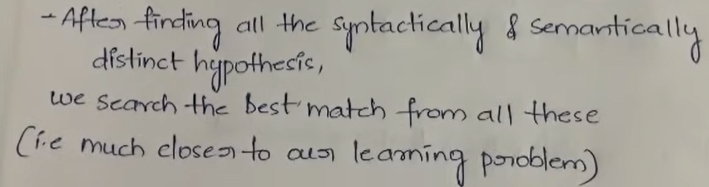 - After finding all the syntactically & semantically
distinct hypothesis,
we search the best match from all these
(i.e much closer to our learning problem)